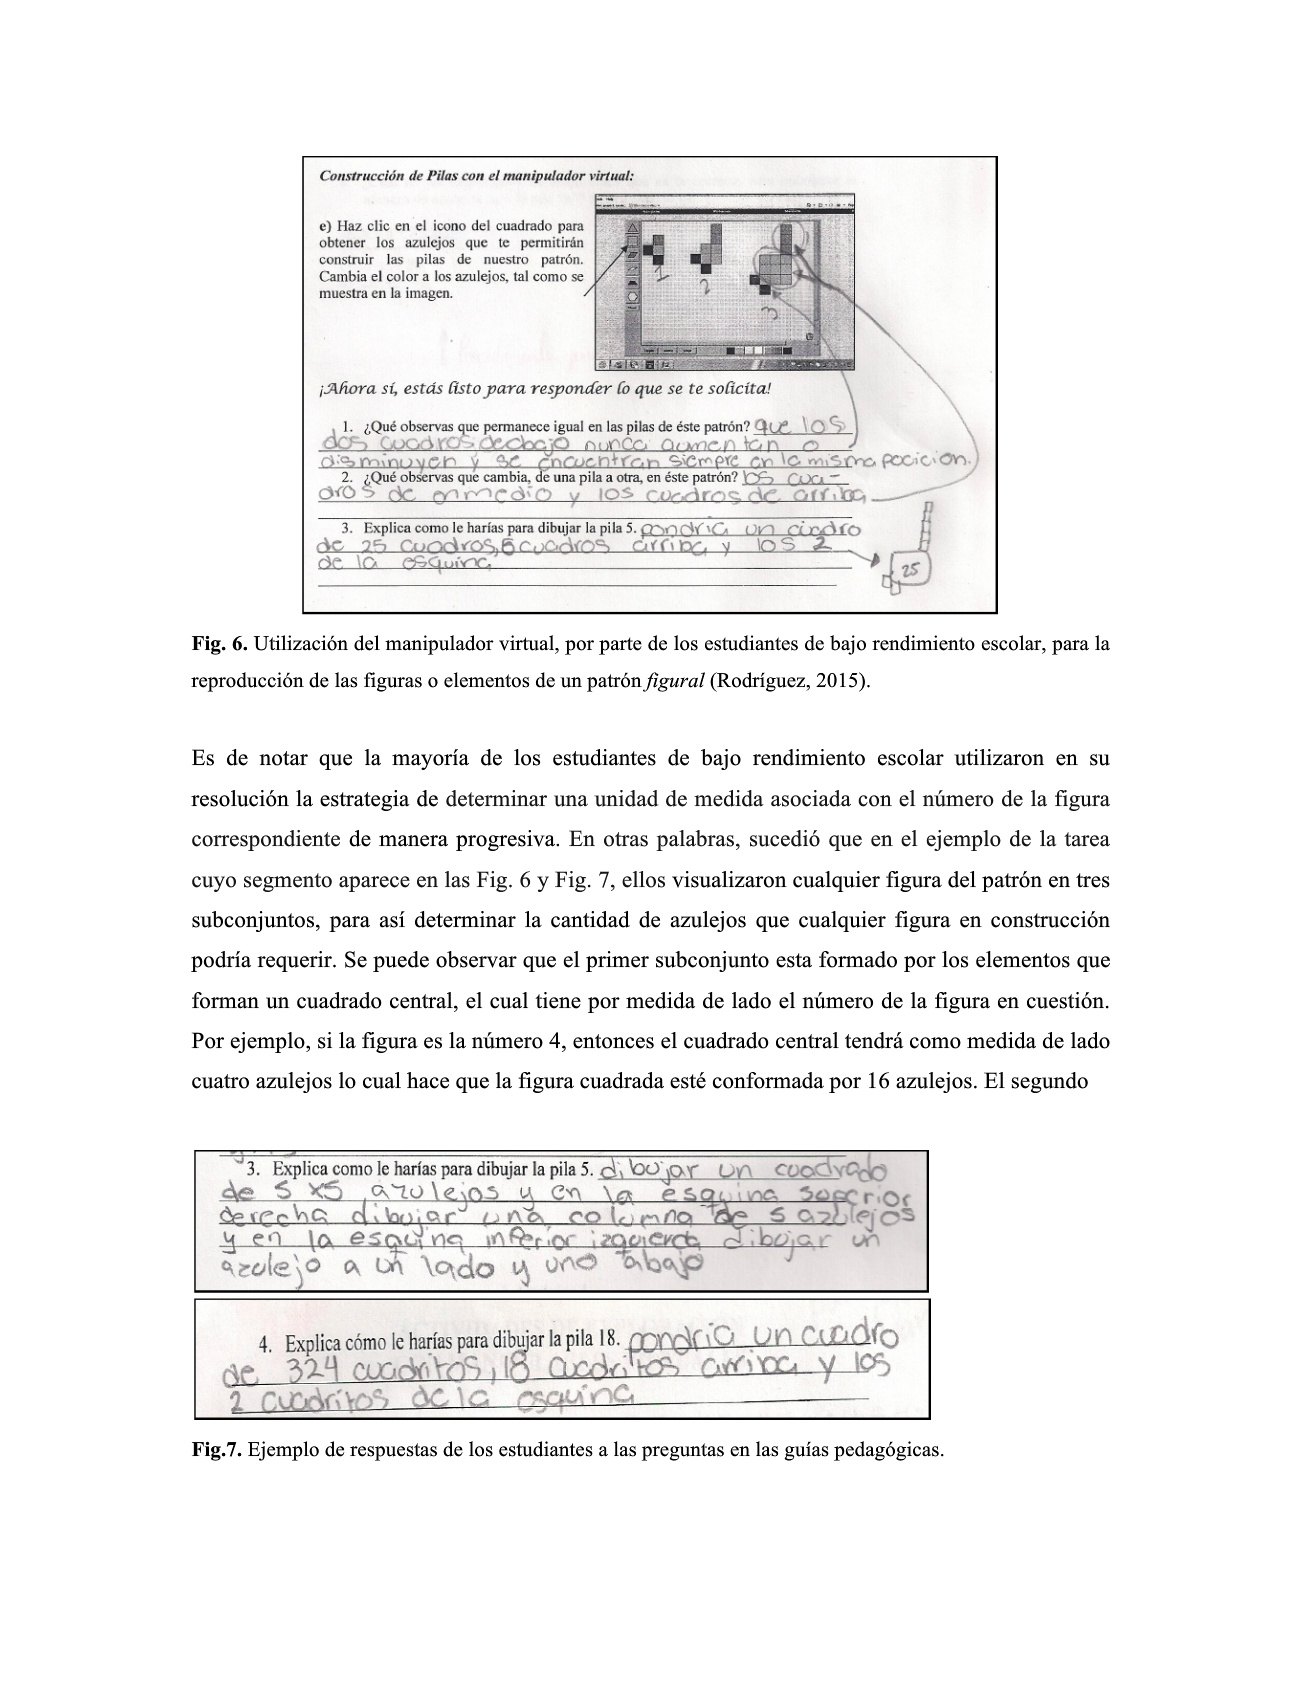 Construcción de Pilas con el manipulador virtual:
e) Haz clic en el icono del cuadrado para
obtener los azulejos que te permitirán
construir las pilas de nuestro patrón.
Cambia el color a los azulejos, tal como se
muestra en la imagen.
1
2
3
¡Ahora sí, estás listo para responder lo que se te solicita!
1. ¿Qué observas que permanece igual en las pilas de éste patrón? que los
dos cuadros de abajo nunca aumentan o
disminuyen y se encuentran siempre en la misma pocición.
2. ¿Qué observas que cambia, de una pila a otra, en éste patrón? los cua-
dros de enmedio y los cuadros de arriba
3. Explica como le harías para dibujar la pila 5. pondria un cuadro
de 25 cuadros, 5 cuadros arriba y los 2
de la esquina
25
Fig. 6. Utilización del manipulador virtual, por parte de los estudiantes de bajo rendimiento escolar, para la
reproducción de las figuras o elementos de un patrón figural (Rodríguez, 2015).
Es de notar que la mayoría de los estudiantes de bajo rendimiento escolar utilizaron en su
resolución la estrategia de determinar una unidad de medida asociada con el número de la figura
correspondiente de manera progresiva. En otras palabras, sucedió que en el ejemplo de la tarea
cuyo segmento aparece en las Fig. 6 y Fig. 7, ellos visualizaron cualquier figura del patrón en tres
subconjuntos, para así determinar la cantidad de azulejos que cualquier figura en construcción
podría requerir. Se puede observar que el primer subconjunto esta formado por los elementos que
forman un cuadrado central, el cual tiene por medida de lado el número de la figura en cuestión.
Por ejemplo, si la figura es la número 4, entonces el cuadrado central tendrá como medida de lado
cuatro azulejos lo cual hace que la figura cuadrada esté conformada por 16 azulejos. El segundo
3. Explica como le harías para dibujar la pila 5. dibujar un cuadrado
de 5 x5 azulejos y en la esquina superior
derecha dibujar una columna de 5 azulejos
y en la esquina inferior izquierda dibujar un
azulejo a un lado y uno abajo
4. Explica cómo le harías para dibujar la pila 18. pondria un cuadro
de 324 cuadritos, 18 cuadritos arriba y los
2 cuadritos de la esquina
Fig.7. Ejemplo de respuestas de los estudiantes a las preguntas en las guías pedagógicas.